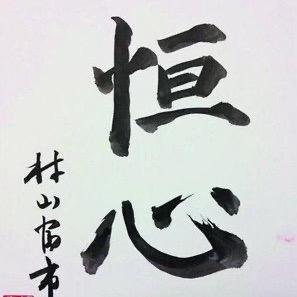 恒心
村山富市